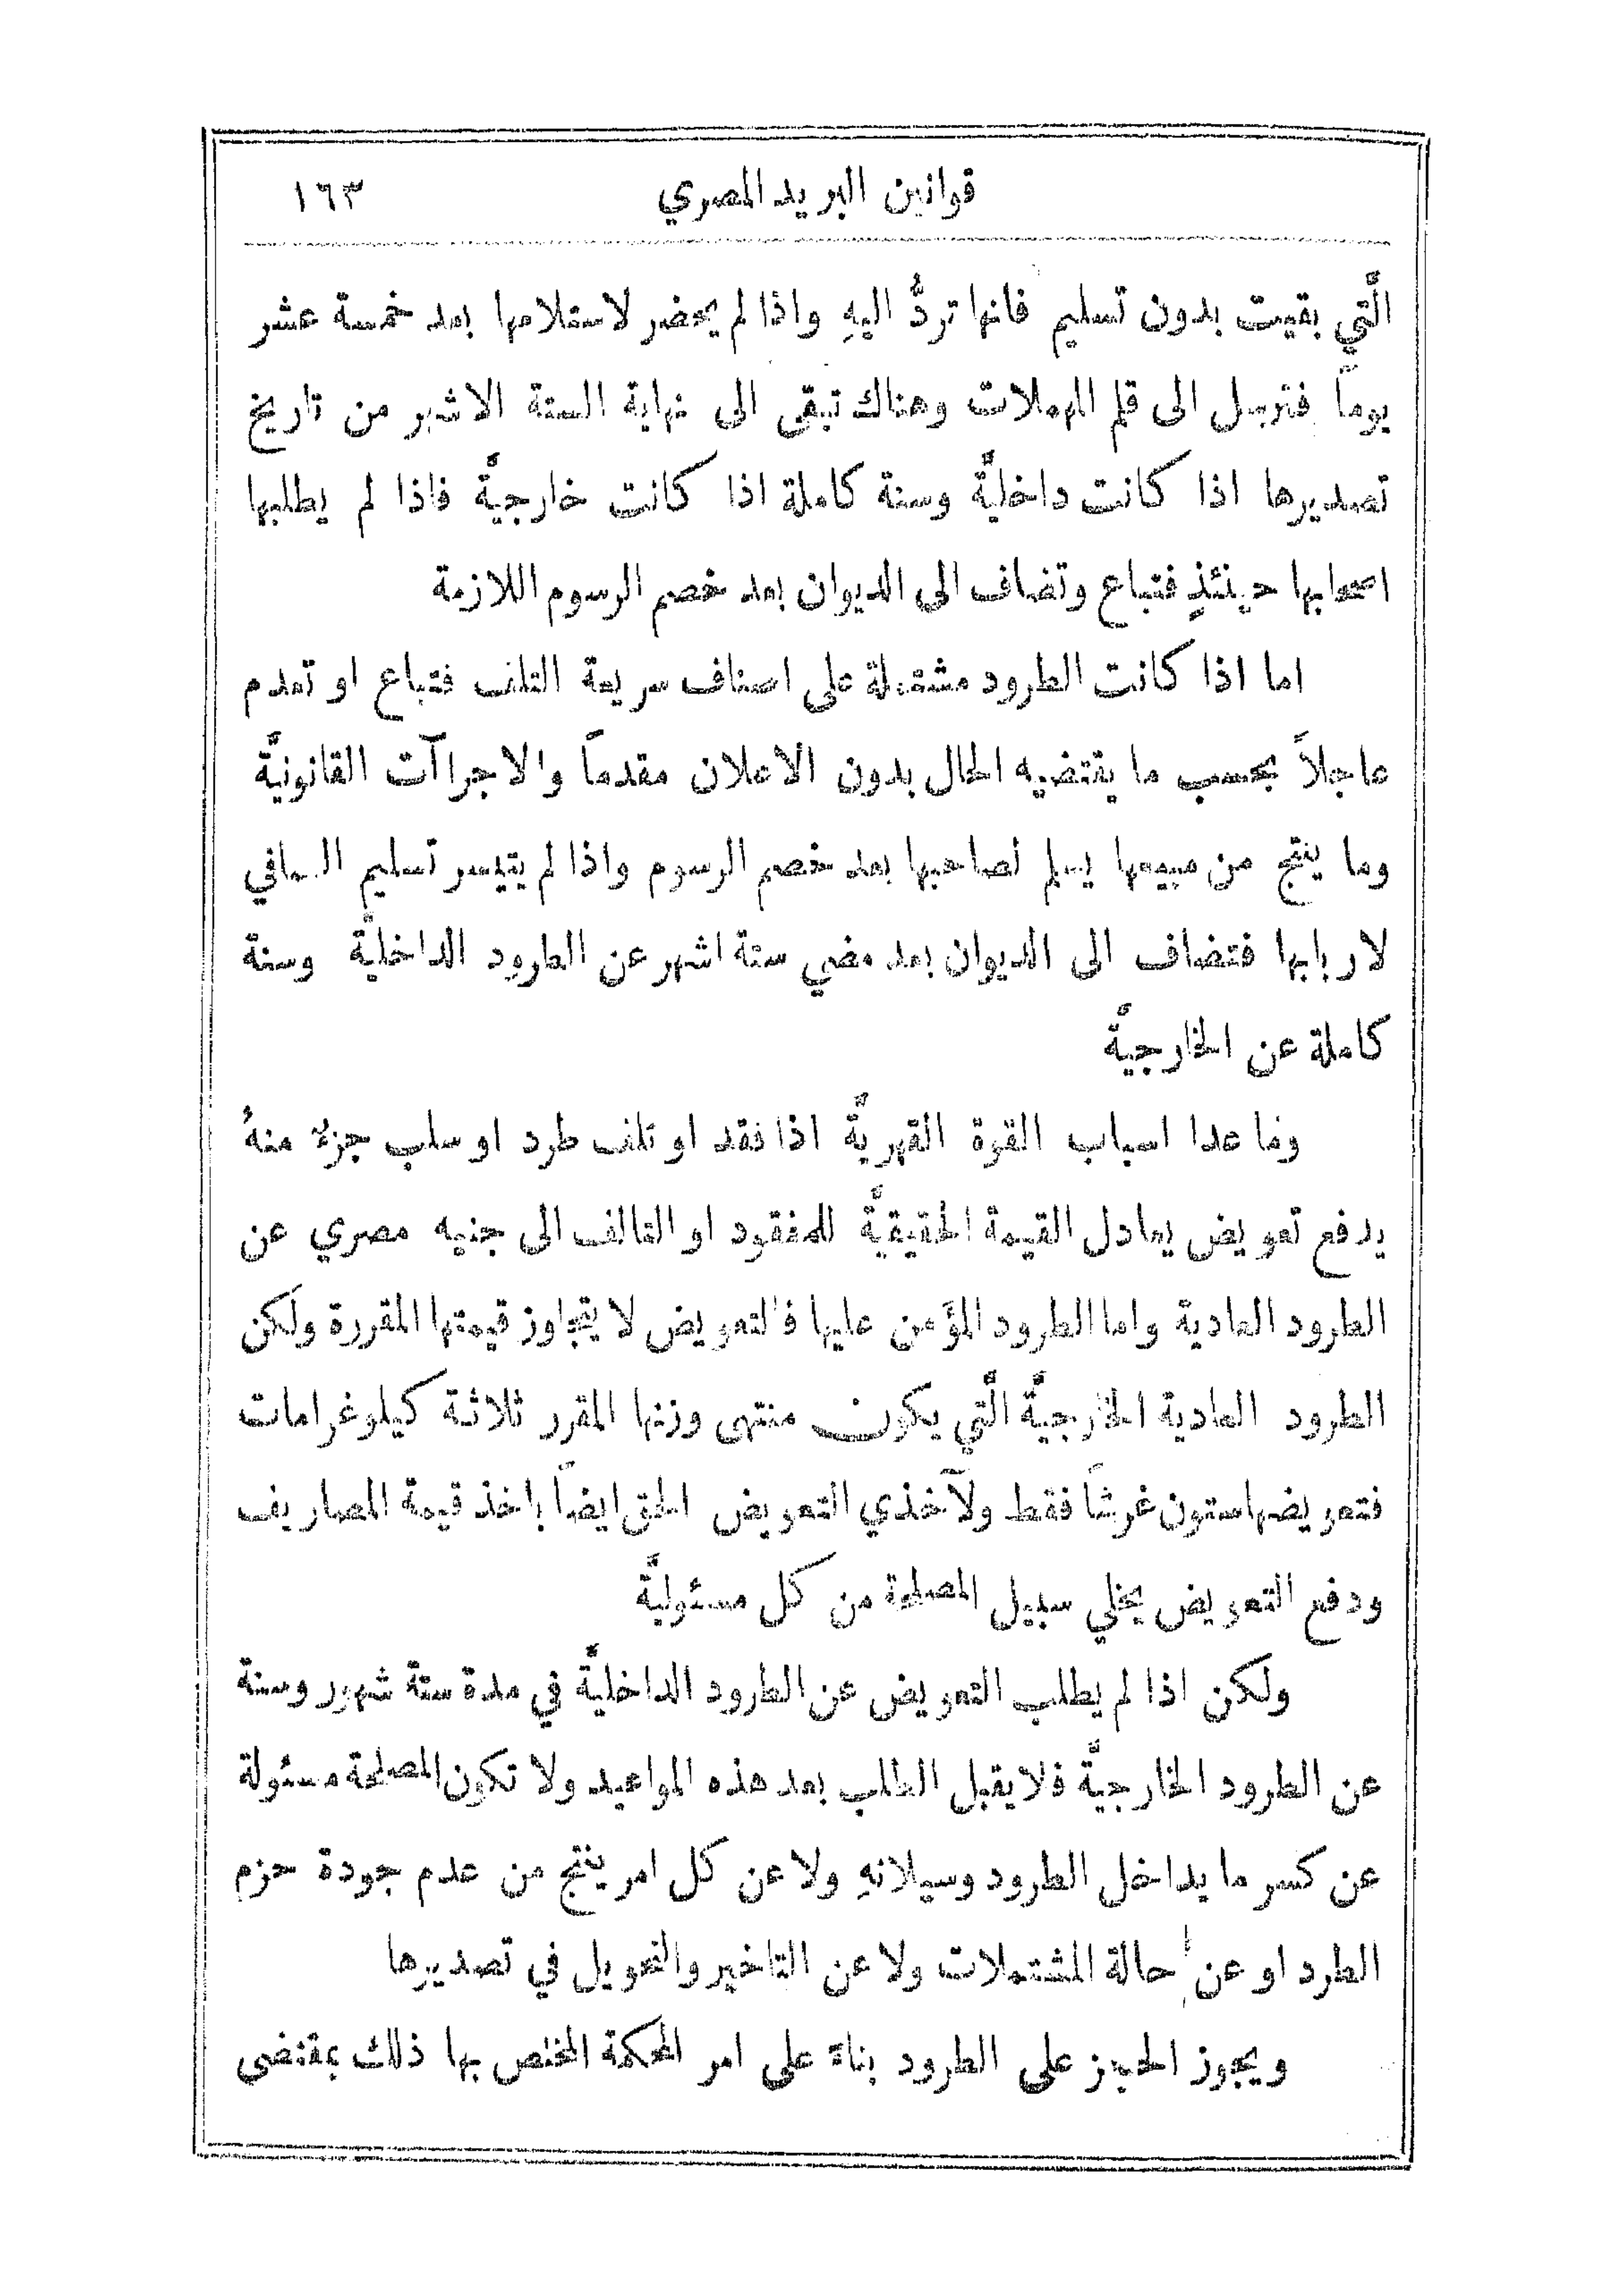 قوانين البريد المصري ١٦٣
الَّتي بقيت بدون تسليم فانها تردُّ اليهِ واذا لم يحضر لاستلامها بعد خمسة عشر
يوماً فترسل الى قلم المهملات وهناك تبقى الى نهاية الستة الاشهر من تاريخ
تصديرها اذا كانت داخليَّة وسنة كاملة اذا كانت خارجيَّة فاذا لم يطلبها
اصحابها حينئذٍ فتباع وتضاف الى الديوان بعد خصم الرسوم اللازمة
اما اذا كانت الطرود مشتملة على اصناف سريعة التلف فتباع او تعدم
عاجلاً بحسب ما يقتضيه الحال بدون الاعلان مقدماً والاجراآت القانونيَّة
وما ينتج من مبيعها يسلم لصاحبها بعد خصم الرسوم واذا لم يتيسر تسليم الصافي
لاربابها فتضاف الى الديوان بعد مضي ستة اشهر عن الطرود الداخليَّة وسنة
كاملة عن الخارجيَّة
وما عدا اسباب القوة القهريَّة اذا فقد او تلف طرد او سلب جزء منهُ
يدفع تعويض يعادل القيمة الحقيقيَّة للمفقود او التالف الى جنيه مصري عن
الطرود العادية واما الطرود المؤَمن عليها فالتعويض لا يتجاوز قيمتها المقررة ولكن
الطرود العادية الخارجيَّة الَّتي يكون منتهى وزنها المقرر ثلاثة كيلوغرامات
فتعويضها ستون غرشاً فقط ولآخذي التعويض الحق ايضاً باخذ قيمة المصاريف
ودفع التعويض يخلي سبيل المصلحة من كل مسئوليَّة
ولكن اذا لم يطلب التعويض عن الطرود الداخليَّة في مدة ستة شهور وسنة
عن الطرود الخارجيَّة فلا يقبل الطلب بعد هذه المواعيد ولا تكون المصلحة مسئولة
عن كسر ما يداخل الطرود وسيلانهِ ولا عن كل امر ينتج من عدم جودة حزم
الطرد او عن حالة المشتملات ولا عن التاخير والتحويل في تصديرها
ويجوز الحجز على الطرود بناءً على امر المحكمة المختص بها ذلك بمقتضى